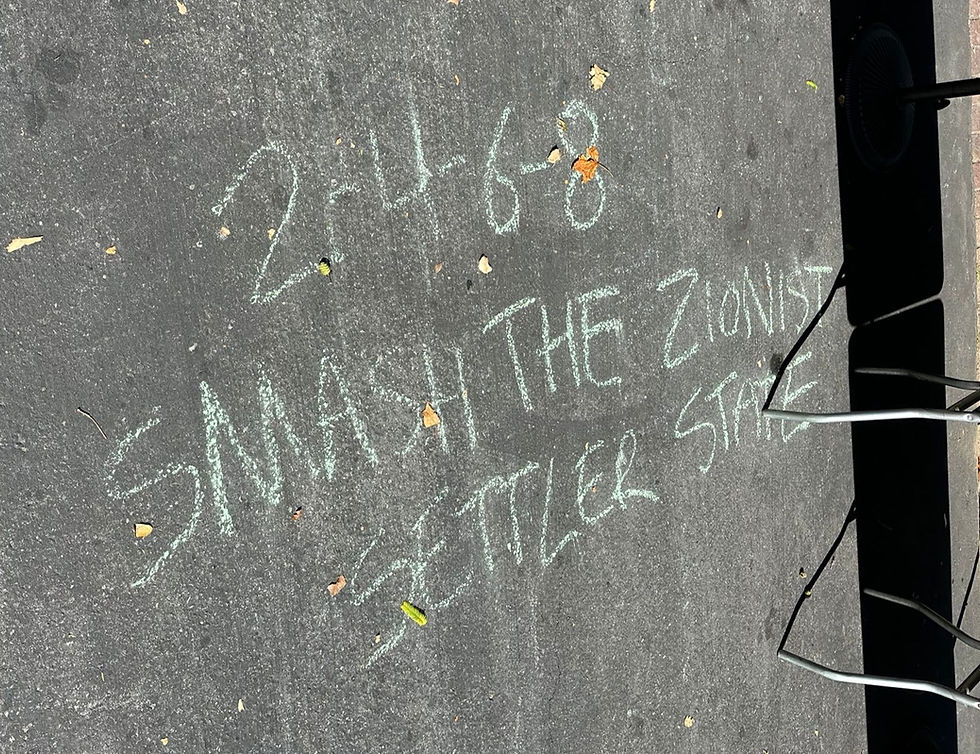 2-4-6-8
SMASH THE ZIONIST
SETTLER STATE